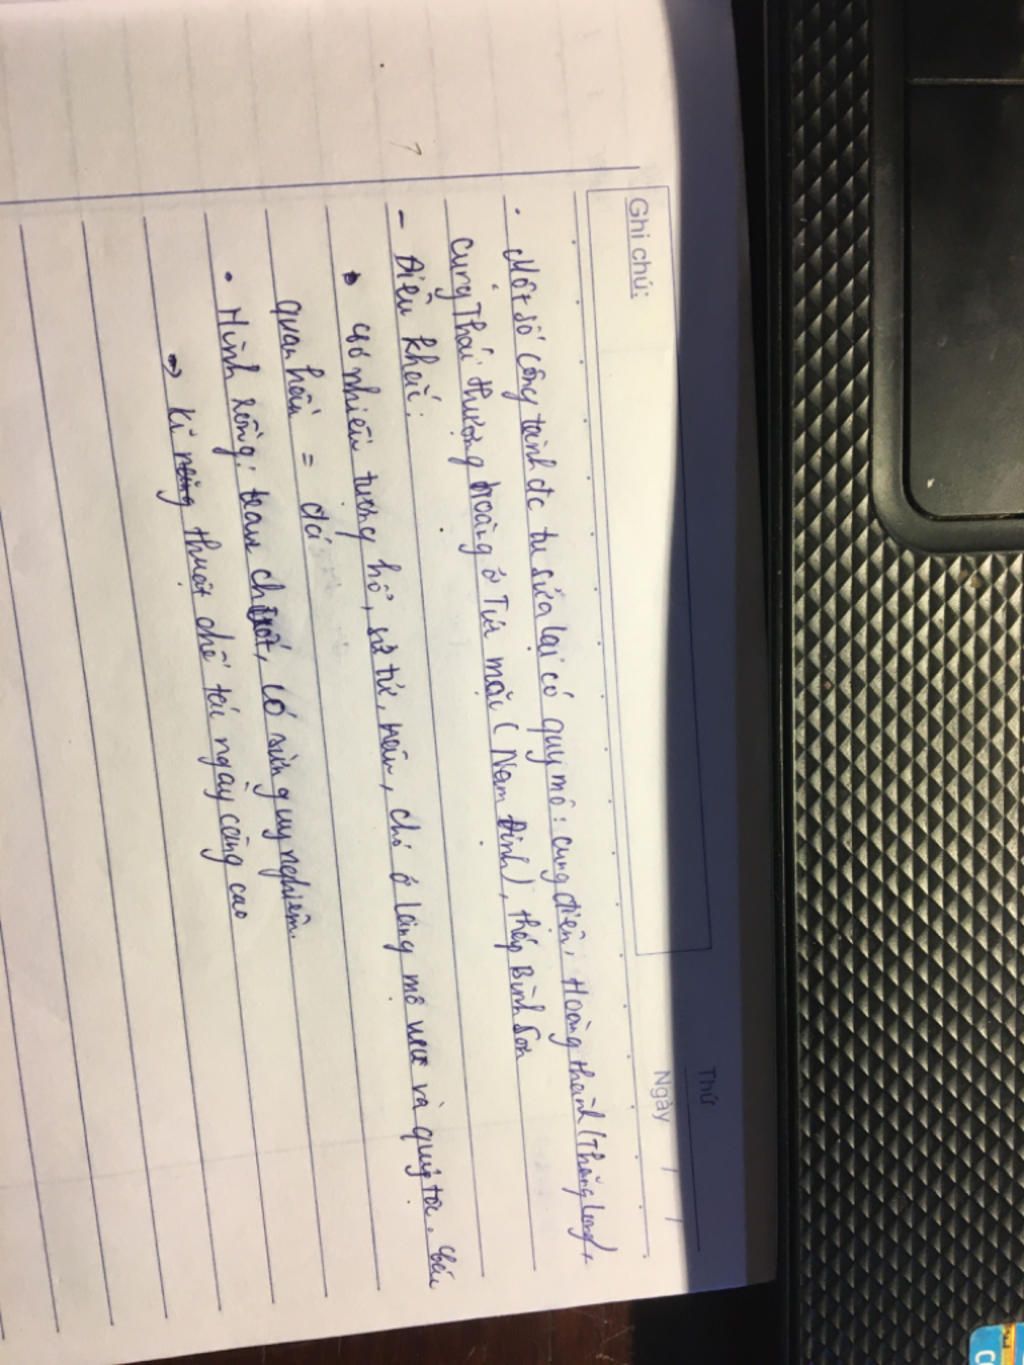 Thứ
Ghi chú: Ngày / /
. Một số công trình đc tu sửa lại có quy mô: cung điện, Hoàng thành (Thăng Long),
cung Thái thượng hoàng ở Tức mặc (Nam Định), tháp Bình Sơn
- Điêu khắc:
• Có nhiều tượng hổ, sư tử, trâu, chó ở lăng mộ vua và quý tộc, các
quan hầu = đá
• Hình Rồng: trau chuốt, có sừng uy nghiêm.
→ Kĩ thuật chế tác ngày càng cao